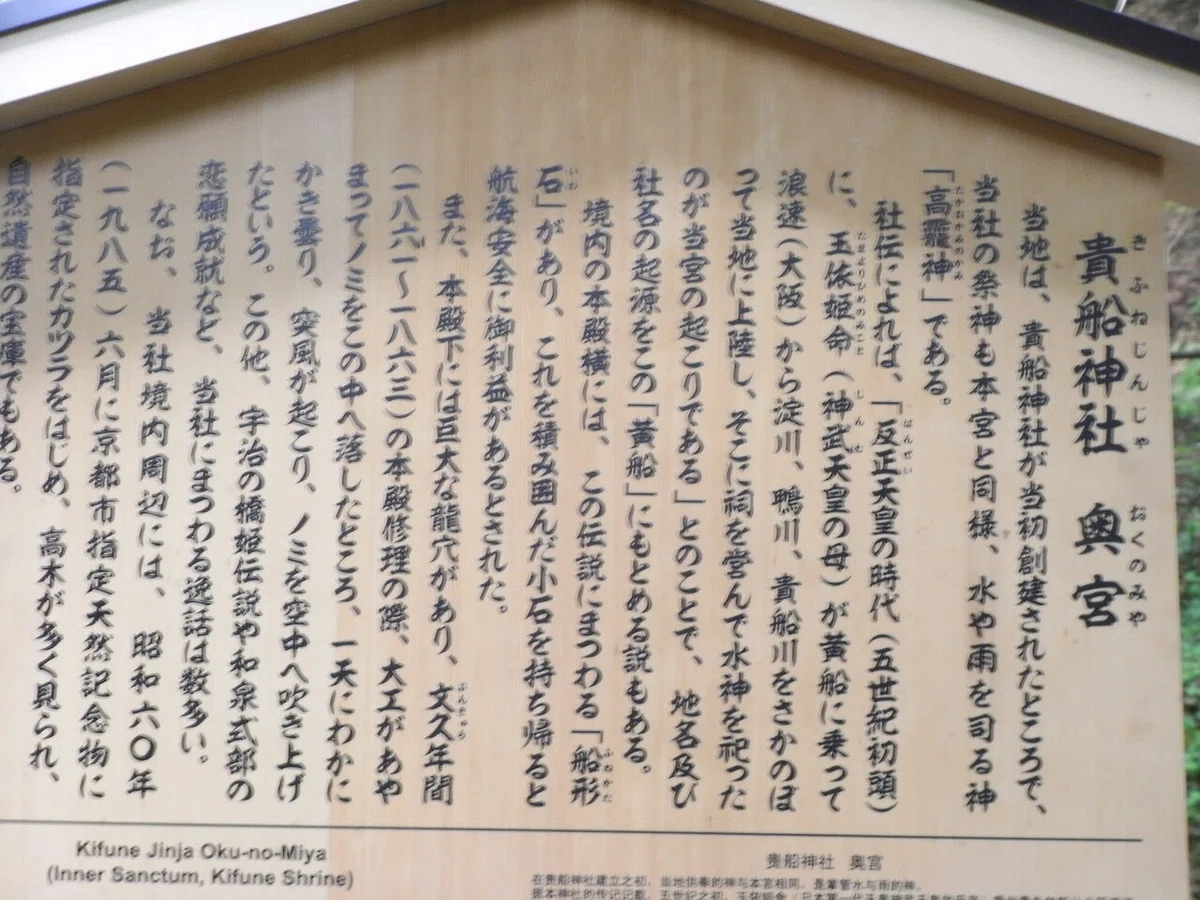 貴船神社　奥宮
きふねじんじゃ　おくのみや
当地は、貴船神社が当初創建されたところで、
当社の祭神も本宮と同様、水や雨を司る神
「高龗神」である。
たかおかみのかみ
社伝によれば、「反正天皇の時代（五世紀初頭）
はんぜい
に、玉依姫命（神武天皇の母）が黄船に乗って
たまよりひめのみこと　じんむ
浪速（大阪）から淀川、鴨川、貴船川をさかのぼ
って当地に上陸し、そこに祠を営んで水神を祀った
のが当宮の起こりである」とのことで、地名及び
社名の起源をこの「黄船」にもとめる説もある。
境内の本殿横には、この伝説にまつわる「船形
ふねがた
石」があり、これを積み囲んだ小石を持ち帰ると
いわ
航海安全に御利益があるとされた。
また、本殿下には巨大な龍穴があり、文久年間
ぶんきゅう
（一八六一〜一八六三）の本殿修理の際、大工があや
まってノミをこの中へ落したところ、一天にわかに
かき曇り、突風が起こり、ノミを空中へ吹き上げ
たという。この他、宇治の橋姫伝説や和泉式部の
恋願成就など、当社にまつわる逸話は数多い。
なお、当社境内周辺には、昭和六〇年
（一九八五）六月に京都市指定天然記念物に
指定されたカツラをはじめ、高木が多く見られ、
自然遺産の宝庫でもある。
Kifune Jinja Oku-no-Miya
(Inner Sanctum, Kifune Shrine)
贵船神社　奥宫
在贵船神社建立之初，当地供奉的神与本宫相同，是掌管水与雨的神。